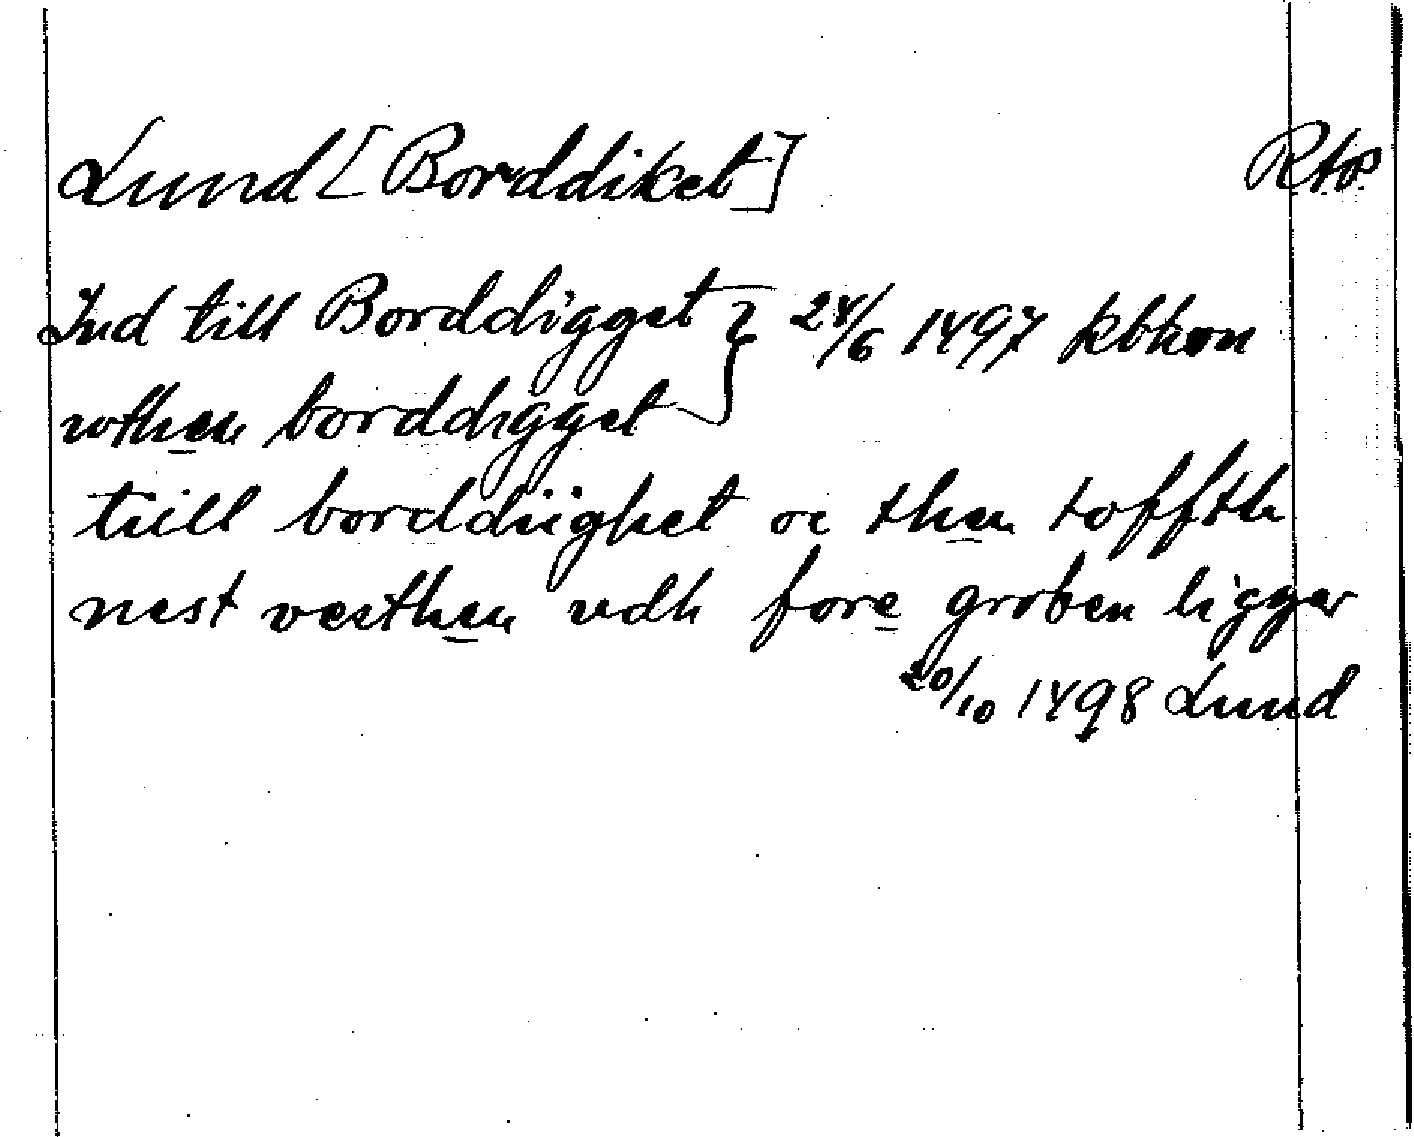 Lund [Borddiket] Rtop
Ind till Borddigget } 24/6 1497 kbhvn
wthen borddigget
tiill borddiighet oc then toffth
nest vesthen vdh fore groben ligger
20/10 1498 Lund